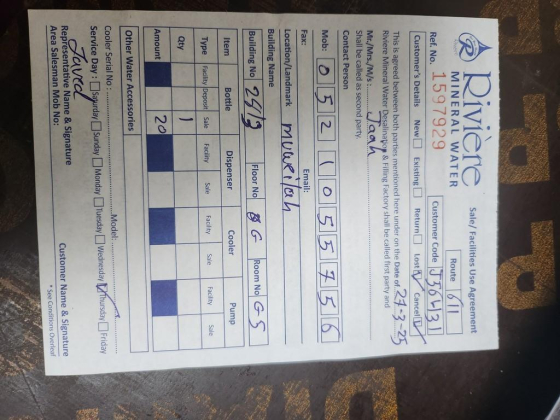 Rivière
MINERAL WATER
Sale/ Facilities Use Agreement
Route 611
Ref. No. 1597929
Customer Code J36431
Customer's Details New Existing Return Lost Cancel
This is agreed between both parties mentioned here under on the Date of 27-3-25
Riviere Mineral Water Desalination & Filling Factory shall be called first party and
Mr./Mrs./M/s : Jaah
Shall be called as second party.
Contact Person
Mob: 0 5 2 1 0 5 5 7 5 6
Fax: Email:
Location/Landmark muweilah
Building Name
Building No Floor No G Room No G5
Item Bottle Dispenser Cooler Pump
Type Facility Deposit Sale Facility Sale Facility Sale Facility Sale
Qty 1
Amount 20
Other Water Accessories
Cooler Serial No : Model:
Service Day : Saturday Sunday Monday Tuesday Wednesday Thursday Friday
Javed
Representative Name & Signature Customer Name & Signature
Area Salesman Mob No: * See Conditions Overleaf